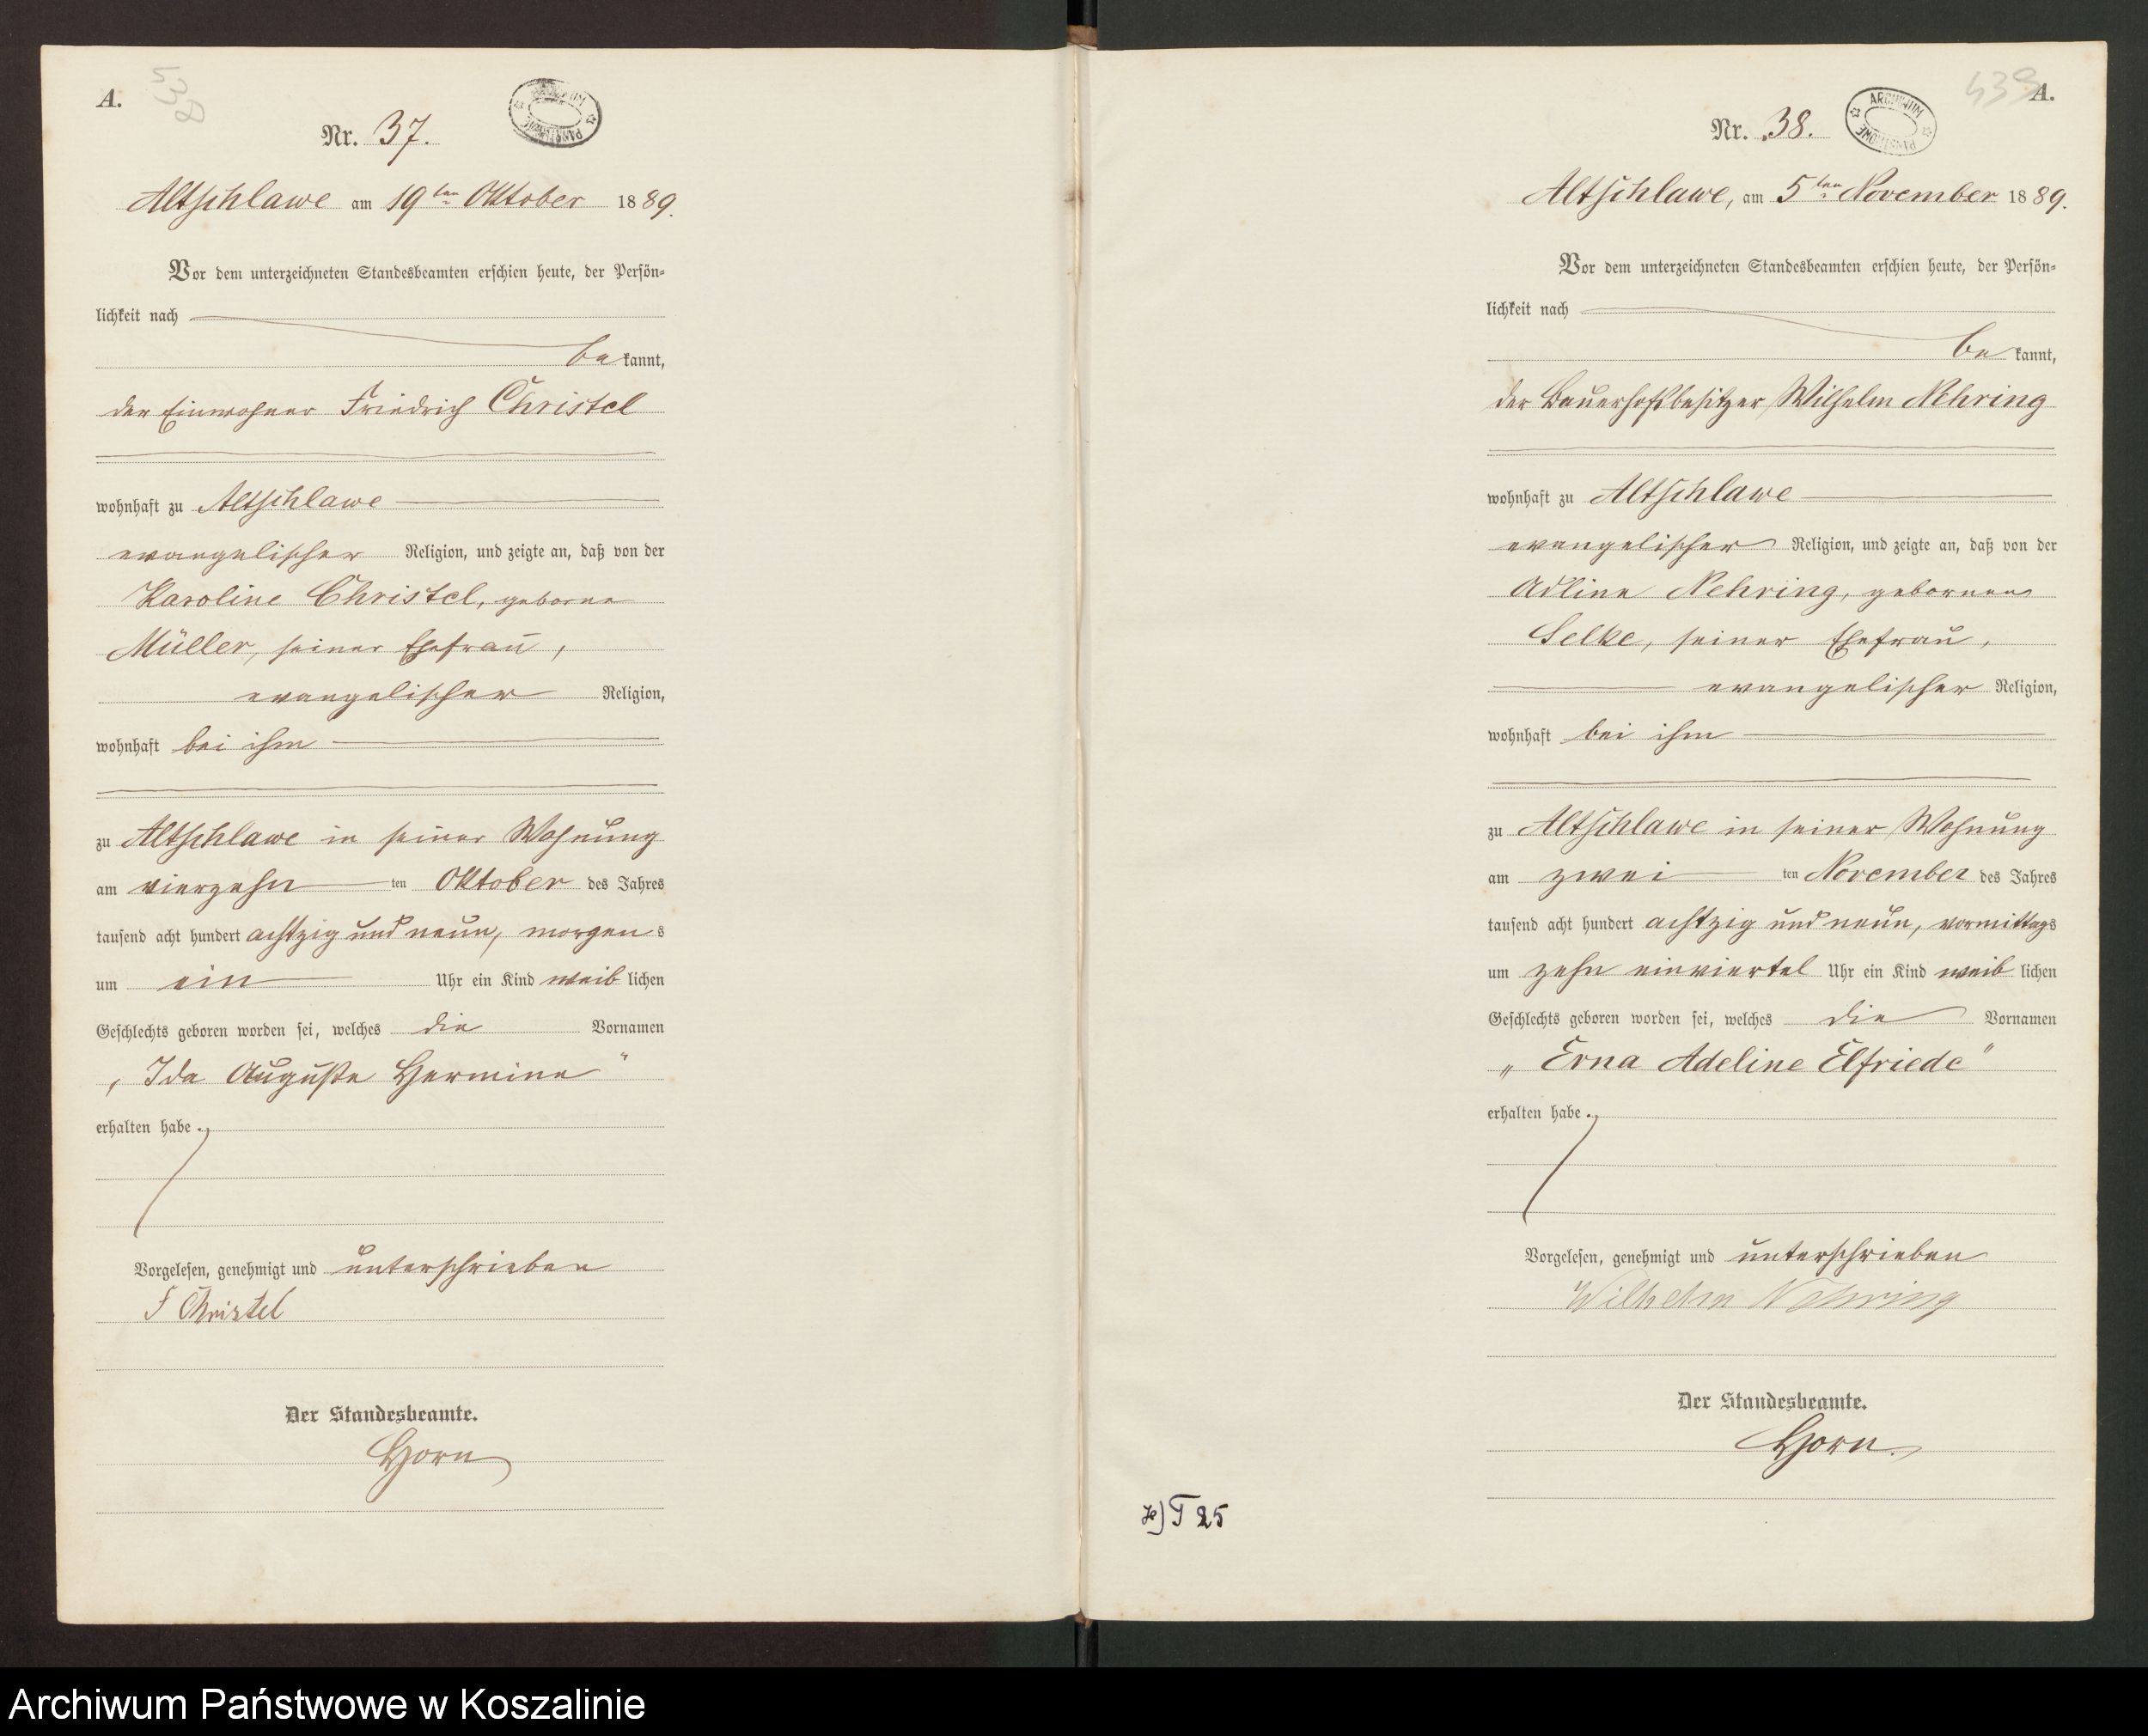 A.
538
Nr. 37.
ARCHIWUM PAŃSTWOWE
Altschlawe am 19ten Oktober 1889.
Vor dem unterzeichneten Standesbeamten erschien heute, der Persön-
lichkeit nach
bekannt,
der Einwohner Friedrich Christel
wohnhaft zu Altschlawe
evangelischer Religion, und zeigte an, daß von der
Karoline Christel, geborne
Müller, seiner Ehefrau,
evangelischer Religion,
wohnhaft bei ihm
zu Altschlawe in seiner Wohnung
am vierzehn ten Oktober des Jahres
tausend acht hundert achtzig und neun, morgens
um ein Uhr ein Kind weiblichen
Geschlechts geboren worden sei, welches die Vornamen
„Ida Auguste Hermine“
erhalten habe.
Vorgelesen, genehmigt und unterschrieben
F Christel
Der Standesbeamte.
Horn
439
A.
Nr. 38.
ARCHIWUM PAŃSTWOWE
Altschlawe, am 5ten November 1889.
Vor dem unterzeichneten Standesbeamten erschien heute, der Persön-
lichkeit nach
bekannt,
der Bauerhofsbesitzer Wilhelm Nehring
wohnhaft zu Altschlawe
evangelischer Religion, und zeigte an, daß von der
Adline Nehring, gebornen
Selke, seiner Ehefrau,
evangelischer Religion,
wohnhaft bei ihm
zu Altschlawe in seiner Wohnung
am zwei ten November des Jahres
tausend acht hundert achtzig und neun, vormittags
um zehn einviertel Uhr ein Kind weiblichen
Geschlechts geboren worden sei, welches die Vornamen
„Erna Adeline Elfriede“
erhalten habe.
Vorgelesen, genehmigt und unterschrieben
Wilhelm Nehring
Der Standesbeamte.
Horn.
T 25
Archiwum Państwowe w Koszalinie